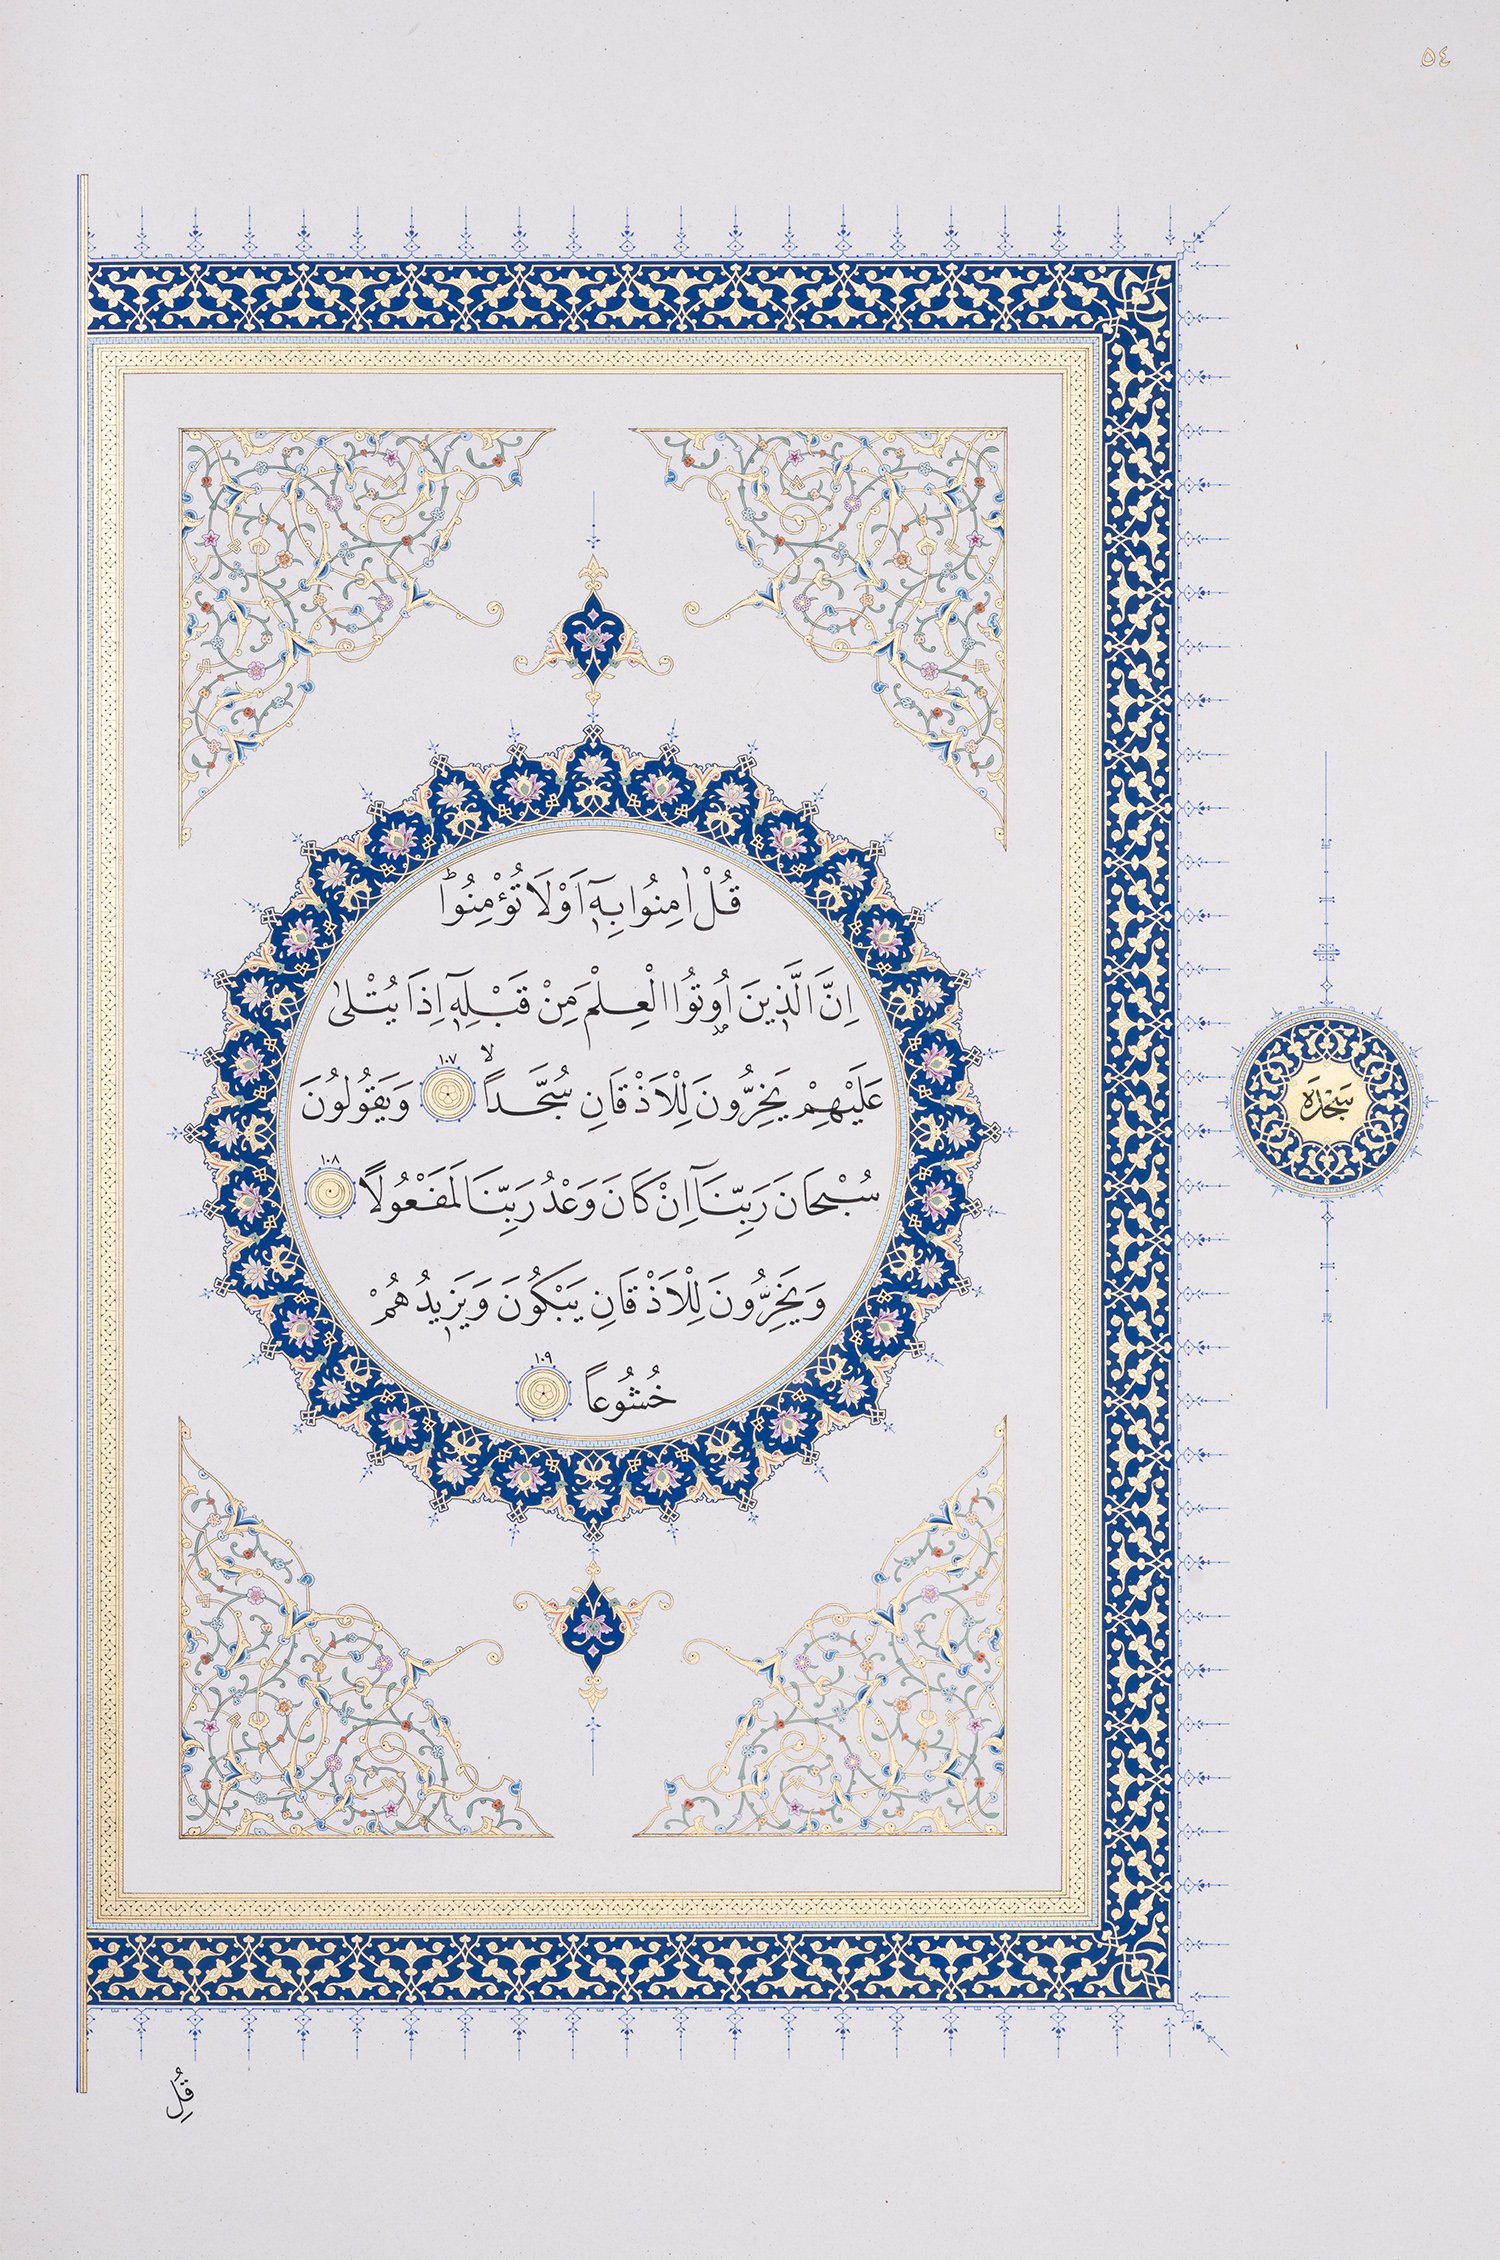 ٥٤
قُلْ اٰمِنُوا بِه۪ٓ اَوْ لَا تُؤْمِنُواۜ
اِنَّ الَّذ۪ينَ اُو۫تُوا الْعِلْمَ مِنْ قَبْلِه۪ٓ اِذَا يُتْلٰى
عَلَيْهِمْ يَخِرُّونَ لِلْاَذْقَانِ سُجَّداًۙ ١٠٧ وَيَقُولُونَ
سُبْحَانَ رَبِّنَٓا اِنْ كَانَ وَعْدُ رَبِّنَا لَمَفْعُولاً ١٠٨
وَيَخِرُّونَ لِلْاَذْقَانِ يَبْكُونَ وَيَز۪يدُهُمْ
خُشُوعاً ١٠٩
سَجْدَه
قُلِ